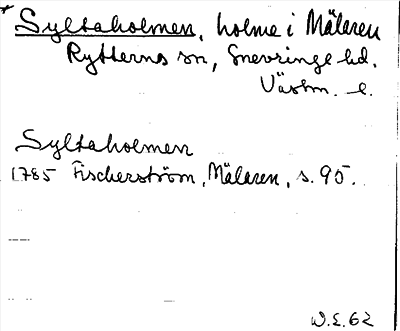 * Syltaholmen, holme i Mälaren
Rytterns sn, Snevringe hd.
Västm. l.
Syltaholmen
1785 Fischerström, Mälaren, s. 95.
W.E. 62